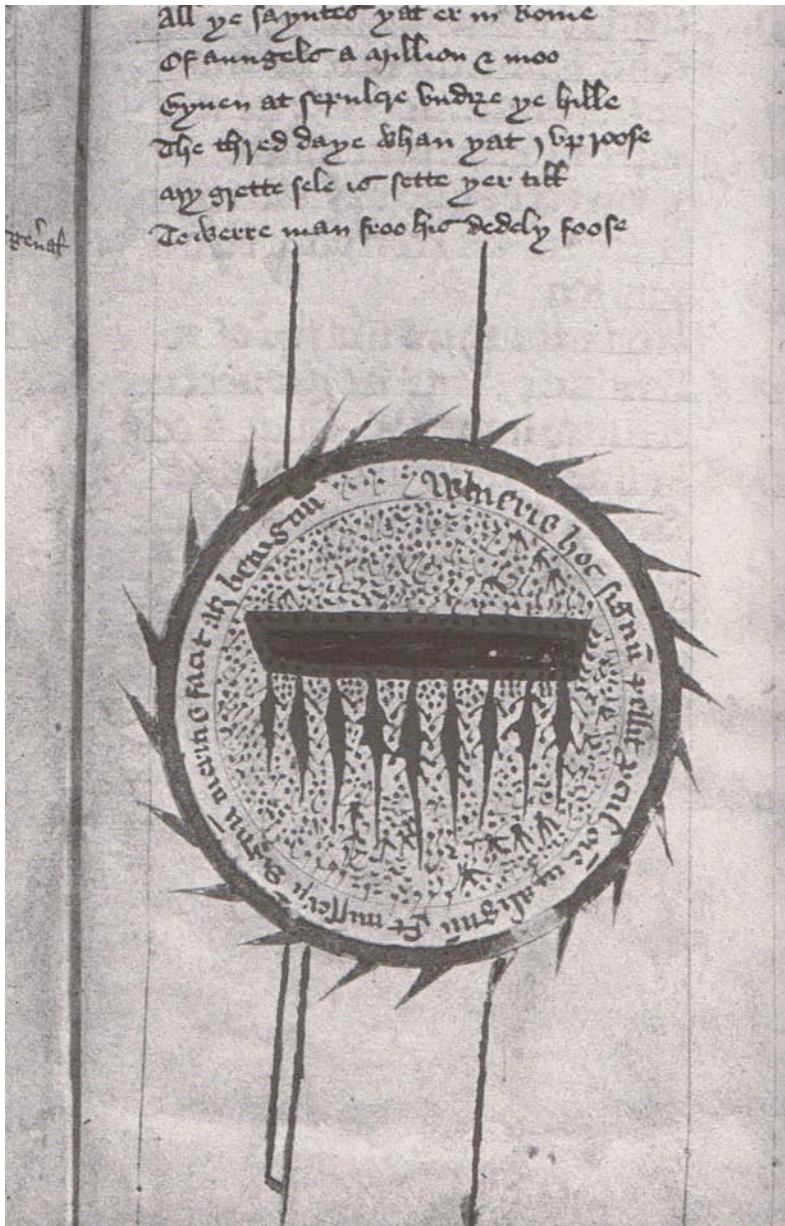 All ye sayntes yat er in Rome
Of aungels a Million & moo
Gyuen at sepulcre vndre ye hille
The thred daye whan yat j vp roose
My grette sele is sette yer till
To werre man froo his dedely foose
Wlneris hoc signū pellit malignū Et dignū facit atq benignū